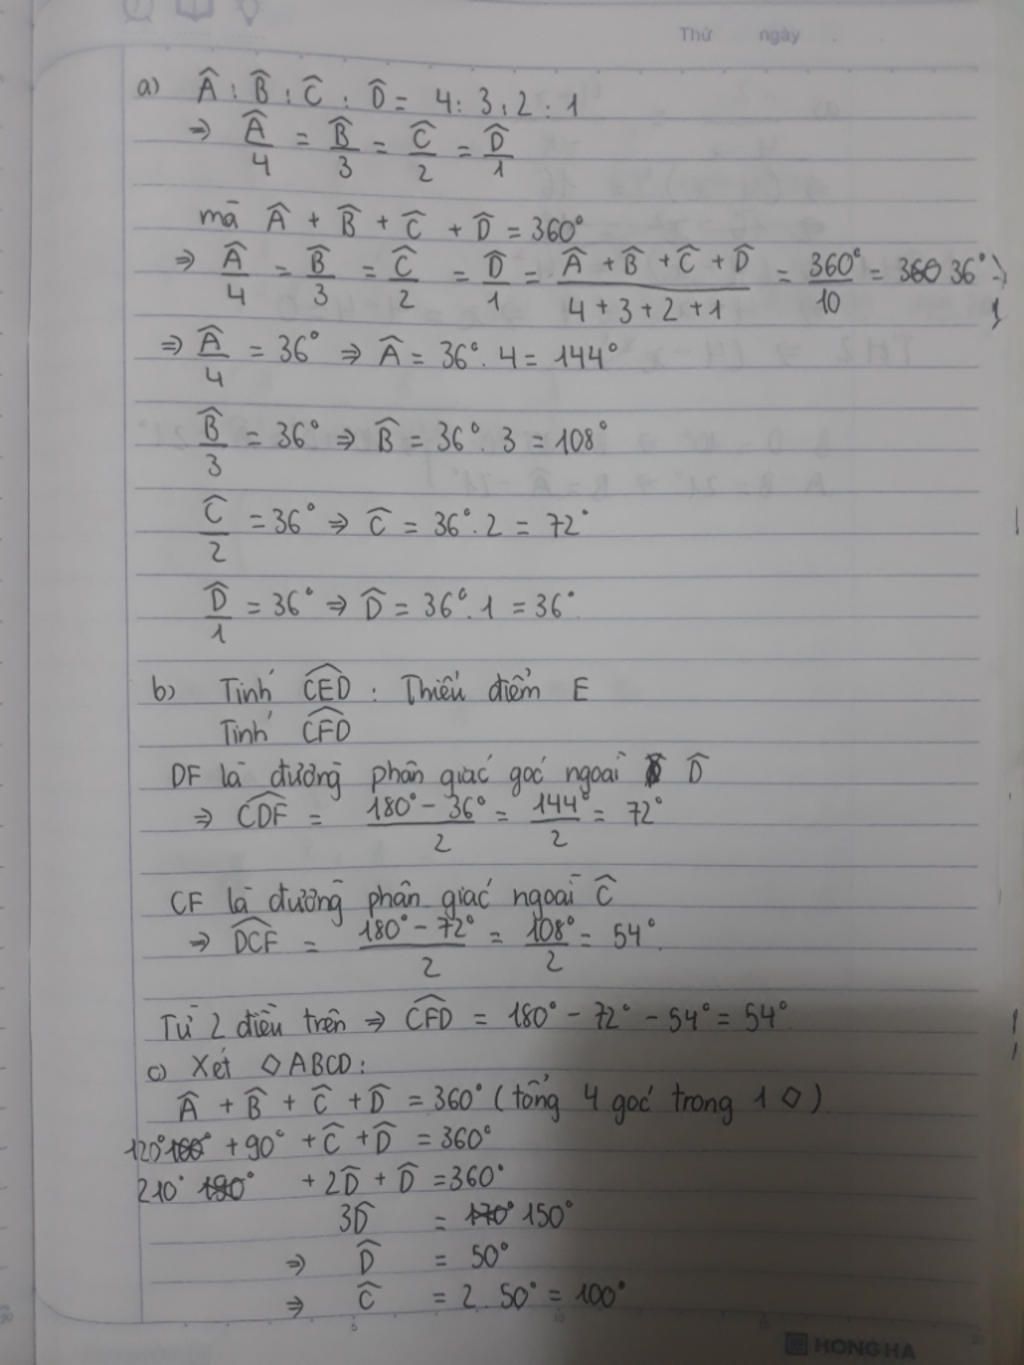 Thứ ngày
a) Â : B̂ : Ĉ : D̂ = 4 : 3 : 2 : 1
⇒ Â/4 = B̂/3 = Ĉ/2 = D̂/1
mà Â + B̂ + Ĉ + D̂ = 360°
⇒ Â/4 = B̂/3 = Ĉ/2 = D̂/1 = (Â + B̂ + Ĉ + D̂)/(4 + 3 + 2 + 1) = 360°/10 = 36°
⇒ Â/4 = 36° ⇒ Â = 36°. 4 = 144°
B̂/3 = 36° ⇒ B̂ = 36°. 3 = 108°
Ĉ/2 = 36° ⇒ Ĉ = 36°. 2 = 72°
D̂/1 = 36° ⇒ D̂ = 36°. 1 = 36°
b) Tính CED : Thiếu điểm E
Tính CFD
DF là đường phân giác góc ngoài D̂
⇒ CDF = (180° - 36°)/2 = 144°/2 = 72°
CF là đường phân giác ngoài Ĉ
⇒ DCF = (180° - 72°)/2 = 108°/2 = 54°
Từ 2 điều trên ⇒ CFD = 180° - 72° - 54° = 54°
c) Xét ◇ ABCD :
Â + B̂ + Ĉ + D̂ = 360° (tổng 4 góc trong 1 ◇)
120° + 90° + Ĉ + D̂ = 360°
210° + 2D̂ + D̂ = 360°
3D̂ = 150°
⇒ D̂ = 50°
⇒ Ĉ = 2. 50° = 100°
HONG HA